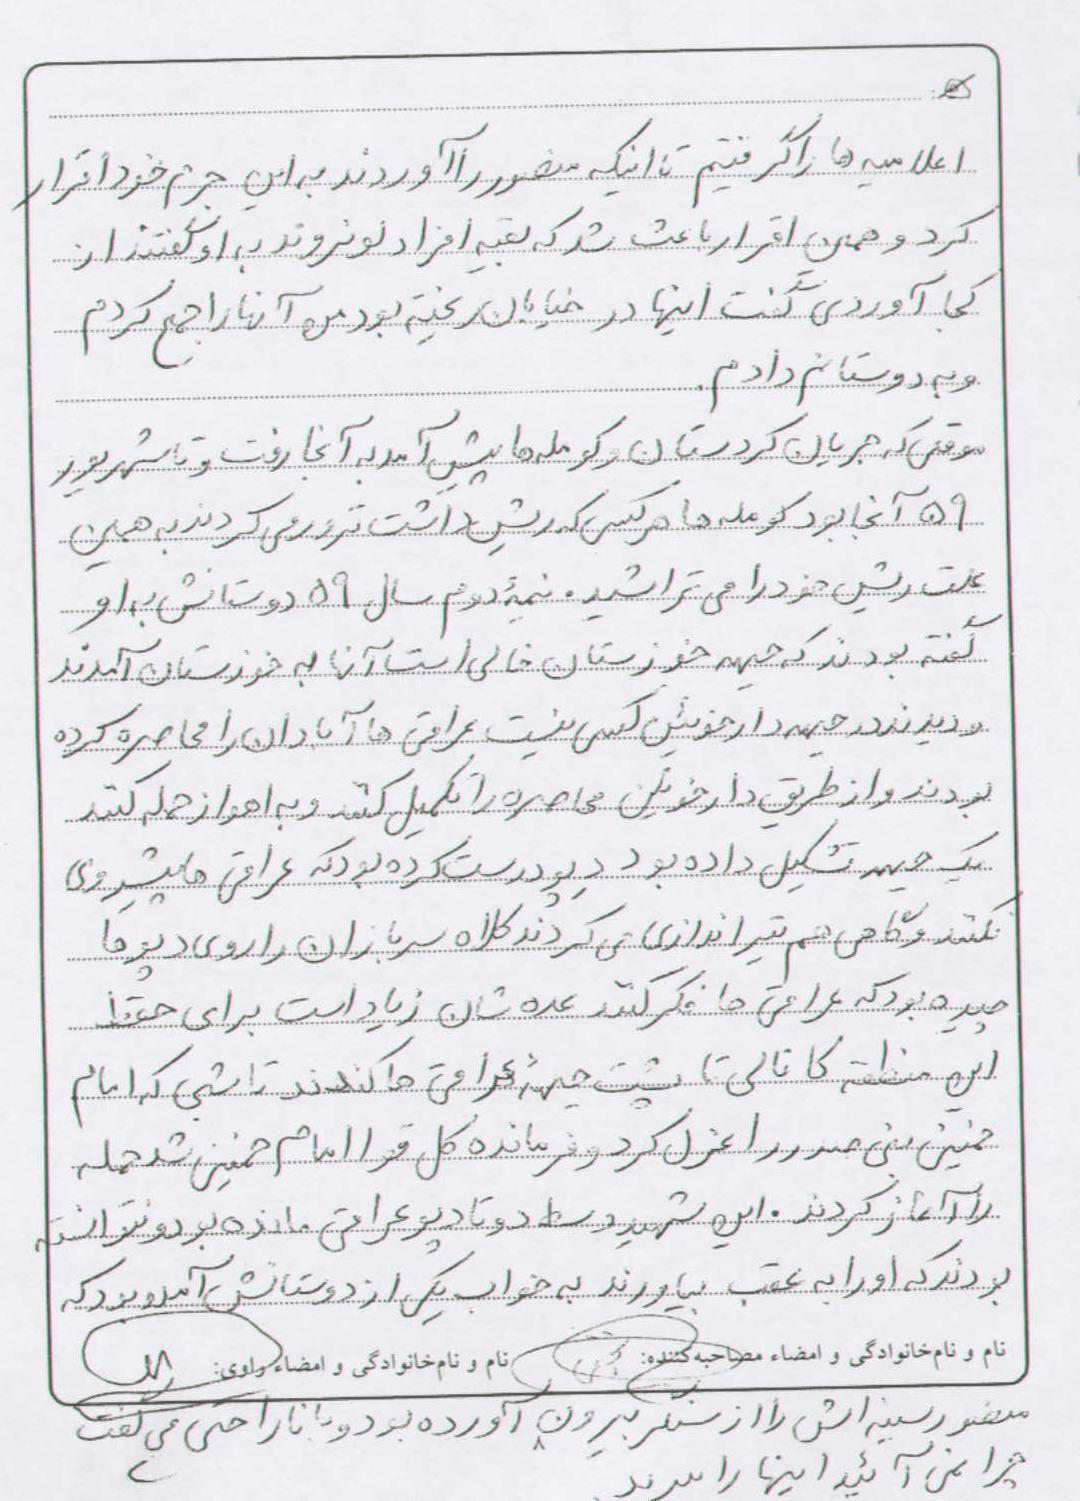 اعلامیه ها را گرفتیم تا اینکه منصور را آوردند به این جرم خود اقرار
کرد و همین اقرار باعث شد که بقیه افراد لو نروند به او گفتند از
کجا آوردی گفت اینها در خیابان ریخته بود من آنها را جمع کردم
و به دوستانم دادم.
موقعی که جریان کردستان و کومله ها پیش آمد به آنجا رفت و تا شهریور
۵۹ آنجا بود کومله ها هر کس که ریش داشت ترور می کردند به همین
علت ریش خود را می تراشید. نیمهٔ دوم سال ۵۹ دوستانش به او
گفته بودند که جبهه خوزستان خالی است آنها به خوزستان آمدند
و دیدند در جبهه دارخوئین کسی نیست عراقی ها آبادان را محاصره کرده
بودند و از طریق دارخوئین محاصره را تکمیل کنند و به اهواز حمله کنند
یک جبهه تشکیل داده بود دپو درست کرده بود که عراقی ها پیشروی
نکنند و گاهی هم تیراندازی می کردند کلاه سربازان را روی دپو ها
چیده بود که عراقی ها فکر کنند عده شان زیاد است برای حفظ
این منطقه کانالی تا پشت جبههٔ عراقی ها کندند تا شبی که امام
خمینی بنی صدر را عزل کرد و فرمانده کل قوا امام خمینی شد حمله
را آغاز کردند. این شهید وسط دو تا دپو عراقی مانده بود و نتوانسته
بودند که او را به عقب بیاورند به خواب یکی از دوستانش آمده بود که
نام و نام‌خانوادگی و امضاء مصاحبه‌کننده: نام و نام‌خانوادگی و امضاء راوی:
منصور سینه اش را از سنگر بیرون آورده بود و با ناراحتی می گفت
چرا نمی آئید اینها را